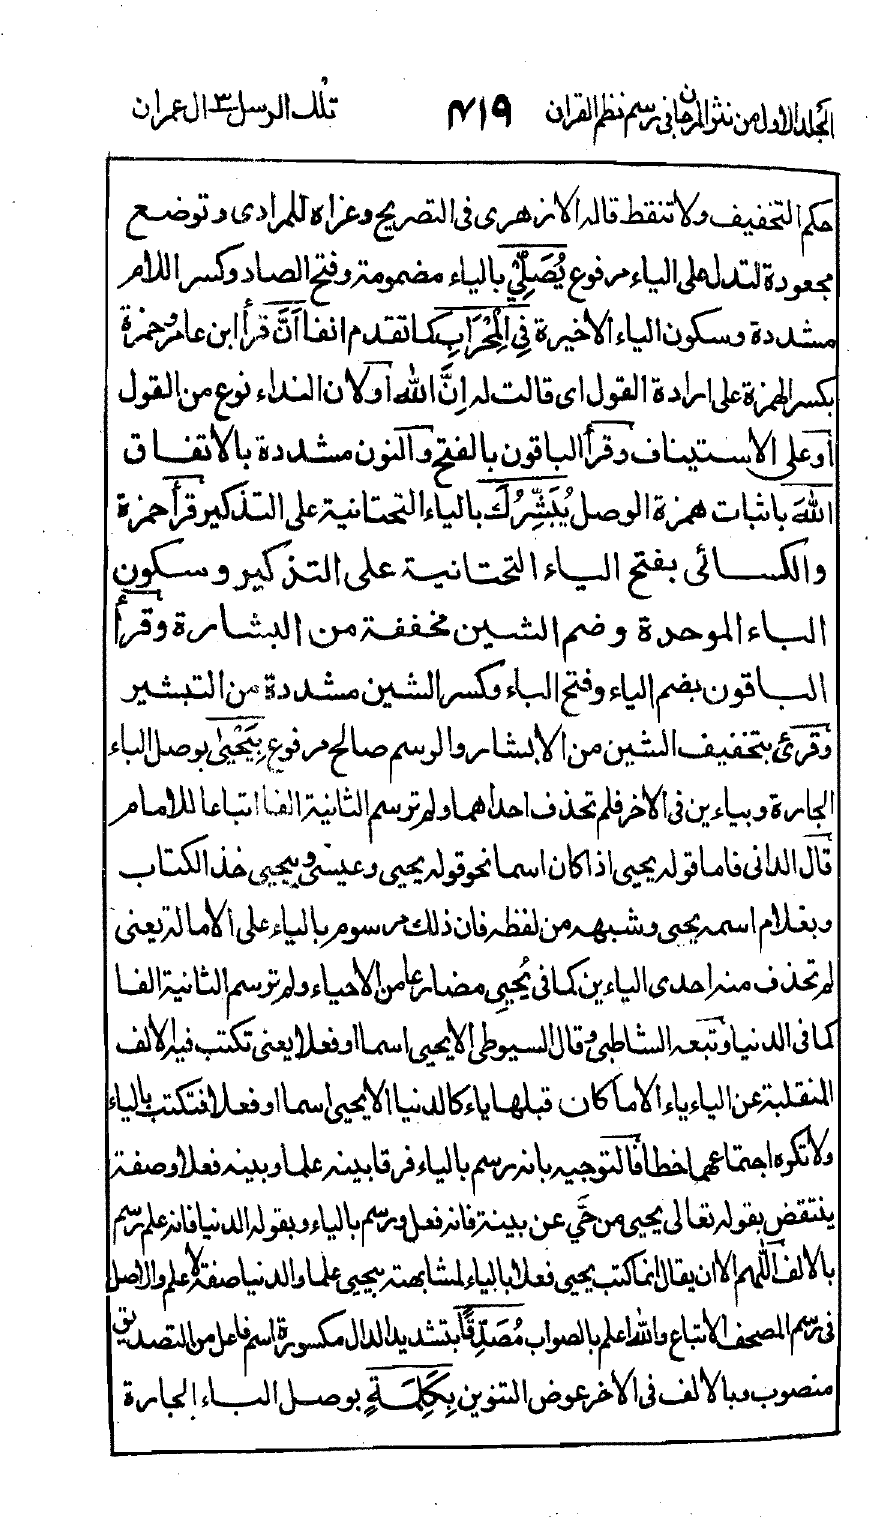 المجلد الاول من نثر المرجان فى رسم نظم القران ٤١٩ تلك الرسل ٣ ال عمران
حكم التخفيف ولا تنقط قاله الازهرى فى التصريح وعزاه للمرادى وتوضع
مجعودة لتدل على الياء مرفوع يُصَلِّيْ بالياء مضمومة وفتح الصاد وكسر اللام
مشددة وسكون الياء الاخيرة فِي الْمِحْرَابِ كما تقدم انفا اَنَّ قرأ ابن عامر وحمزة
بكسر الهمزة على ارادة القول اى قالت له اِنَّ الله أو لان النداء نوع من القول
أو على الاستيناف وقرأ الباقون بالفتح والنون مشددة بالاتفاق
اللهَ باثبات همزة الوصل يُبَشِّرُكَ بالياء التحتانية على التذكير قرأ حمزة
والكسائى بفتح الياء التحتانية على التذكير وسكون
الباء الموحدة وضم الشين مخففة من البشارة وقرأ
الباقون بضم الياء وفتح الباء وكسر الشين مشددة من التبشير
وقرئ بتخفيف الشين من الابشار والرسم صالح مرفوع بِيَحْيٰى بوصل الباء
الجارة وبياءين فى الاخر فلم تحذف احداهما ولم ترسم الثانية الفا اتباعا للامام
قال الدانى فاما قوله يحيى اذا كان اسما نحو قوله يحيى وعيسى و ييحيى خذ الكتاب
وبغلام اسمه يحيى وشبهه من لفظه فان ذلك مرسوم بالياء على الامالة يعنى
لم تحذف منه احدى الياءين كما فى يُحيِي مضارعا من الاحياء ولم ترسم الثانية الفا
كما فى الدنيا وتبعه الشاطبى وقال السيوطى الا يحيى اسما او فعلا يعنى تكتب فيه الالف
المنقلبة عن الياء ياء الا ما كان قبلها ياء كالدنيا الا يحيى اسما او فعلا فتكتب بالياء
ولا تكره اجتماعهما خطا فالتوجيه بانه رسم بالياء فرقا بينه علما وبينه فعلا وصفة
ينتقض بقوله تعالى يحيى من حَيَّ عن بينة فانه فعل ورسم بالياء وبقوله الدنيا فانه علم رسم
بالالف اللهم الا ان يقال انما كتب يحيى فعلا بالياء لمشابهته بيحيى علما والدنيا صفة لا علم والاصل
فى رسم المصحف الاتباع والله اعلم بالصواب مُصَدِّقًا بتشديد الدال مكسورة اسم فاعل من التصديق
منصوب وبالالف فى الاخر عوض التنوين بِكَلِمَةٍ بوصل الباء الجارة